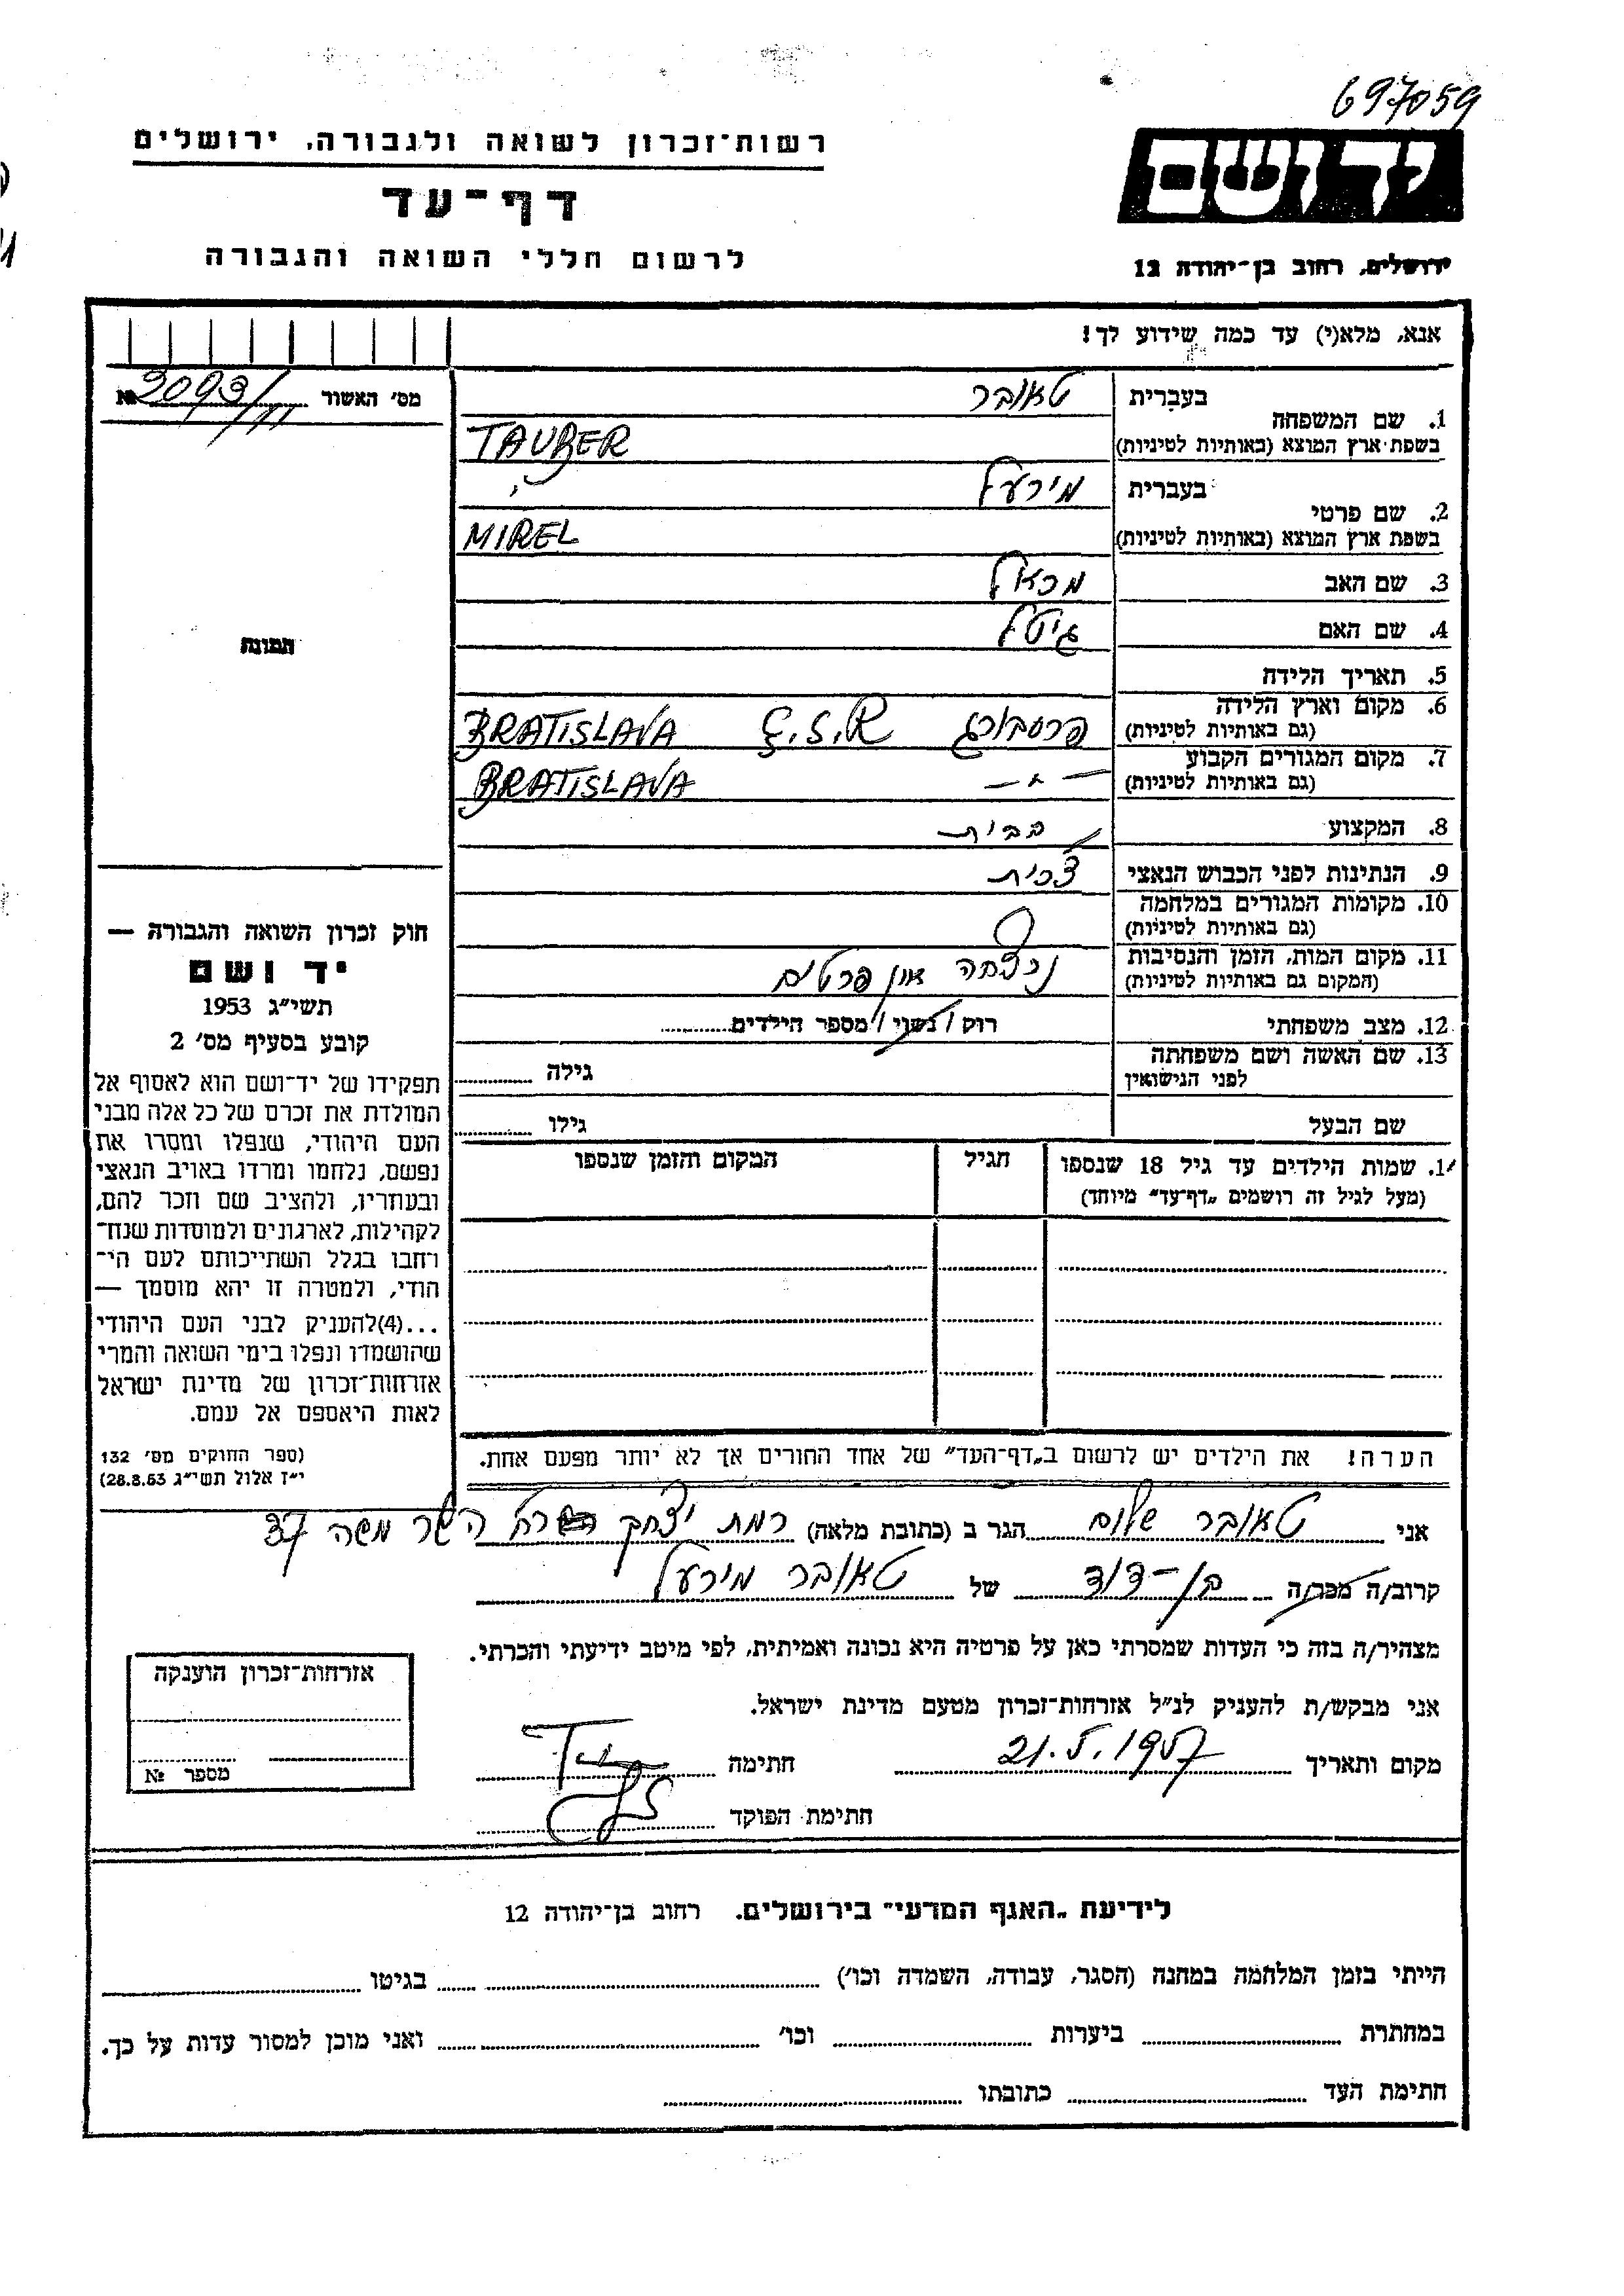 697059
רשות־זכרון לשואה ולגבורה, ירושלים
יד ושם
דף־עד
לרשום חללי השואה והגבורה
ירושלים, רחוב בן־יהודה 12
אנא, מלא(י) עד כמה שידוע לך!
מס׳ האשור № 2093/
1. שם המשפחה בעברית טאובר
בשפת־ארץ המוצא (באותיות לטיניות) TAUBER
2. שם פרטי בעברית מירעל
בשפת ארץ המוצא (באותיות לטיניות) MIREL
3. שם האב מכאל
4. שם האם גיטל
5. תאריך הלידה
6. מקום וארץ הלידה
(גם באותיות לטיניות) פרסבורג Č.S.R BRATISLAVA
7. מקום המגורים הקבוע
(גם באותיות לטיניות) — " — BRATISLAVA
8. המקצוע
9. הנתינות לפני הכבוש הנאצי צכית
10. מקומות המגורים במלחמה
(גם באותיות לטיניות)
11. מקום המות, הזמן והנסיבות
(המקום גם באותיות לטיניות) נרצחה אין פרטים
12. מצב משפחתי רווק / נשוי / מספר הילדים
13. שם האשה ושם משפחתה
לפני הנישואין גילה
שם הבעל גילו
תמונה
חוק זכרון השואה והגבורה —
יד ושם
תשי״ג 1953
קובע בסעיף מס׳ 2
תפקידו של יד־ושם הוא לאסוף אל
המולדת את זכרם של כל אלה מבני
העם היהודי, שנפלו ומסרו את
נפשם, נלחמו ומרדו באויב הנאצי
ובעוזריו, ולהציב שם וזכר להם,
לקהילות, לארגונים ולמוסדות שנח־
רחבו בגלל השתייכותם לעם הי־
הודי, ולמטרה זו יהא מוסמך —
...(4)להעניק לבני העם היהודי
שהושמדו ונפלו בימי השואה והמרי
אזרחות־זכרון של מדינת ישראל
לאות היאספם אל עמם.
(ספר החוקים מס׳ 132
י״ז אלול תשי״ג 28.8.53)
1. שמות הילדים עד גיל 18 שנספו הגיל המקום והזמן שנספו
(מעל לגיל זה רושמים „דף־עד״ מיוחד)
הערה! את הילדים יש לרשום ב„דף־העד״ של אחד ההורים אך לא יותר מפעם אחת.
אני טאובר שלום הגר ב (כתובת מלאה) רמת יצחק השר משה 37
קרוב/ה מכר/ה בן-דוד של טאובר מירעל
מצהיר/ה בזה כי העדות שמסרתי כאן על פרטיה היא נכונה ואמיתית, לפי מיטב ידיעתי והכרתי.
אני מבקש/ת להעניק לנ״ל אזרחות־זכרון מטעם מדינת ישראל.
מקום ותאריך 21.5.1957 חתימה
חתימת הפוקד
אזרחות־זכרון הוענקה
מספר №
לידיעת „האגף המדעי״ בירושלים. רחוב בן־יהודה 12
הייתי בזמן המלחמה במחנה (הסגר, עבודה, השמדה וכו׳) בגיטו
במחתרת ביערות וכו׳ ואני מוכן למסור עדות על כך.
חתימת העד כתובתו